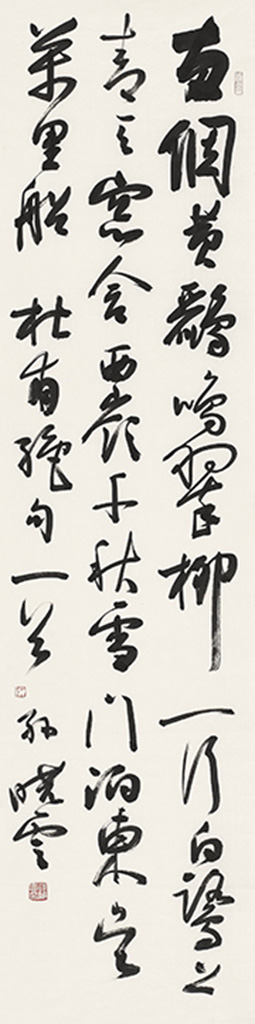 兩個黃鸝鳴翠柳一行白鷺上
青天窗含西嶺千秋雪門泊東吳
萬里船 杜甫絕句一首 孫曉雲